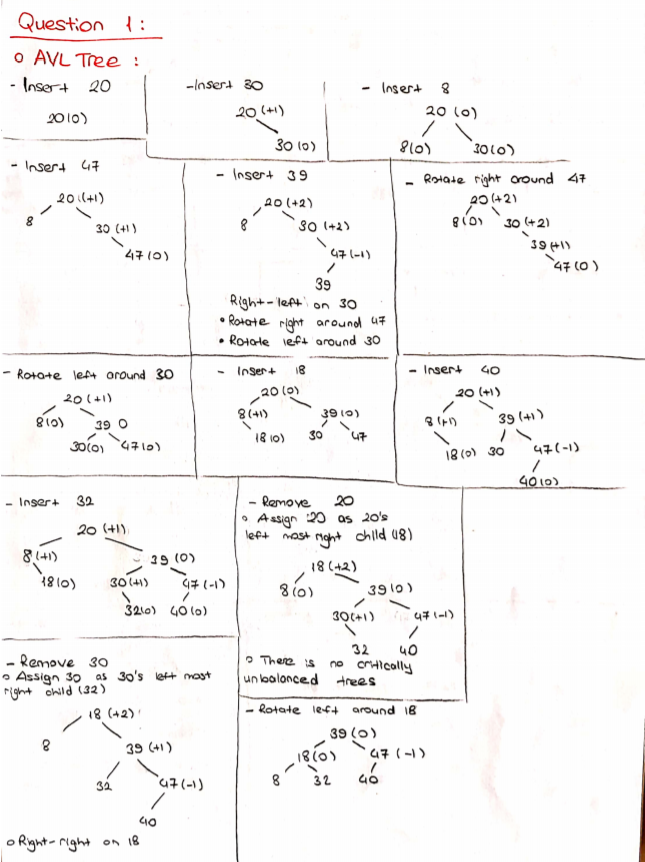 Question 1:
o AVL Tree:
- Insert 20
20(0)
-Insert 30
20(+1)
30(0)
- Insert 8
20(0)
8(0) 30(0)
- Insert 47
20(+1)
8 30(+1)
47(0)
- Insert 39
20(+2)
8 30(+2)
47(-1)
39
Right-left on 30
• Rotate right around 47
• Rotate left around 30
- Rotate right around 47
20(+2)
8(0) 30(+2)
39(+1)
47(0)
- Rotate left around 30
20(+1)
8(0) 39 0
30(0) 47(0)
- Insert 18
20(0)
8(+1) 39(0)
18(0) 30 47
- Insert 40
20(+1)
8(+1) 39(+1)
18(0) 30 47(-1)
40(0)
- Insert 32
20(+1)
8(+1) 39(0)
18(0) 30(+1) 47(-1)
32(0) 40(0)
- Remove 20
o Assign 20 as 20's
left most right child (18)
18(+2)
8(0) 39(0)
30(+1) 47(-1)
32 40
o There is no critically
unbalanced trees
- Remove 30
o Assign 30 as 30's left most
right child (32)
18(+2)
8 39(+1)
32 47(-1)
40
o Right-right on 18
- Rotate left around 18
39(0)
18(0) 47(-1)
8 32 40